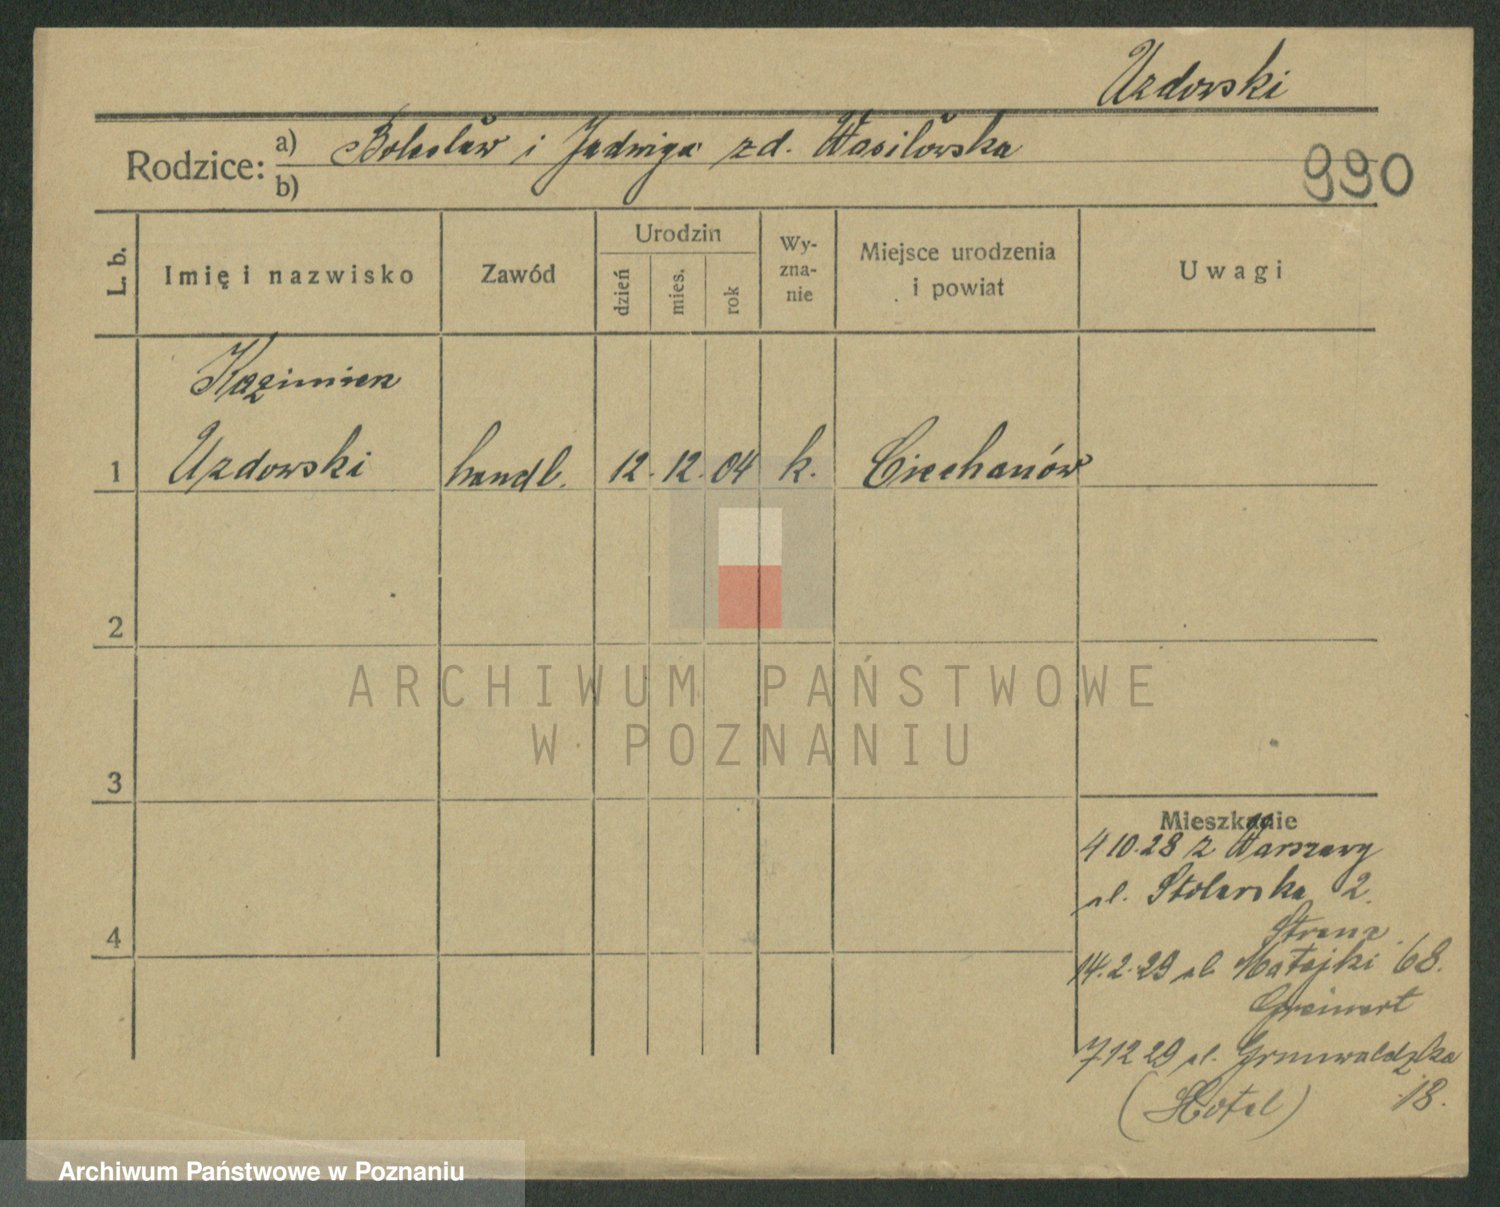 Uzdowski
Rodzice: a) Bolesław i Jadwiga zd. Wasilówska
b)
990
L. b.
Imię i nazwisko
Zawód
Urodzin
dzień
mies.
rok
Wy-
zna-
nie
Miejsce urodzenia
i powiat
Uwagi
Kazimierz
1 Uzdowski handl. 12. 12. 04 k. Ciechanów
2
3
4
Mieszkanie
4 10.28 z Warszawy
ul. Stolarska 2.
14.2.29 ul. Matejki 68.
Greinert
7 12 29 ul. Grunwaldzka
18.
(Hotel)
ARCHIWUM PAŃSTWOWE
W POZNANIU
Archiwum Państwowe w Poznaniu